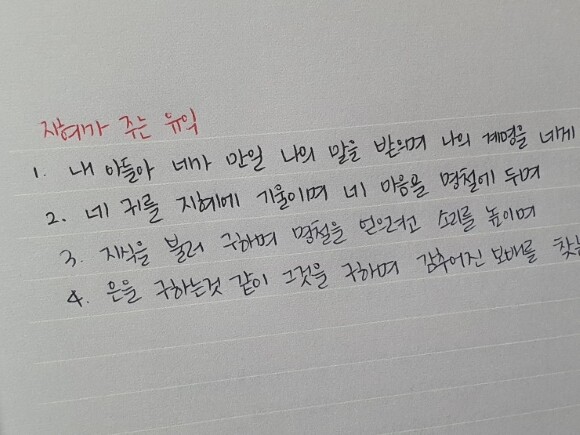 지혜가 주는 유익
1. 내 아들아 네가 만일 나의 말을 받으며 나의 계명을 네게
2. 네 귀를 지혜에 기울이며 네 마음을 명철에 두며
3. 지식을 불러 구하며 명철을 얻으려고 소리를 높이며
4. 은을 구하는것 같이 그것을 구하며 감추어진 보배를